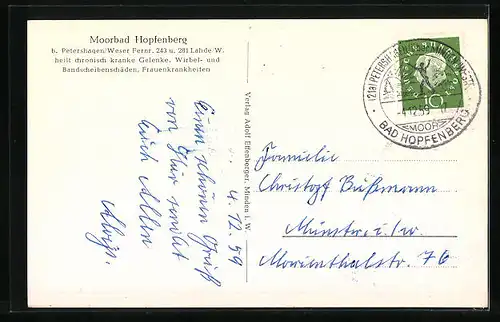 Moorbad Hopfenberg
b. Petershagen/Weser Fernr. 243 u. 281 Lahde/W.
heilt chronisch kranke Gelenke, Wirbel- und
Bandscheibenschäden, Frauenkrankheiten
Verlag Adolf Effenberger, Minden i. W.
4.12.59
Einen schönen Gruß
von hier sendet
Euch Allen
Aloys.
Familie
Christoph Bußmann
Münster i/W
Marienthalstr. 76
(21a) PETERSHAGEN
-4.12.59
MOOR
BAD HOPFENBERG
10